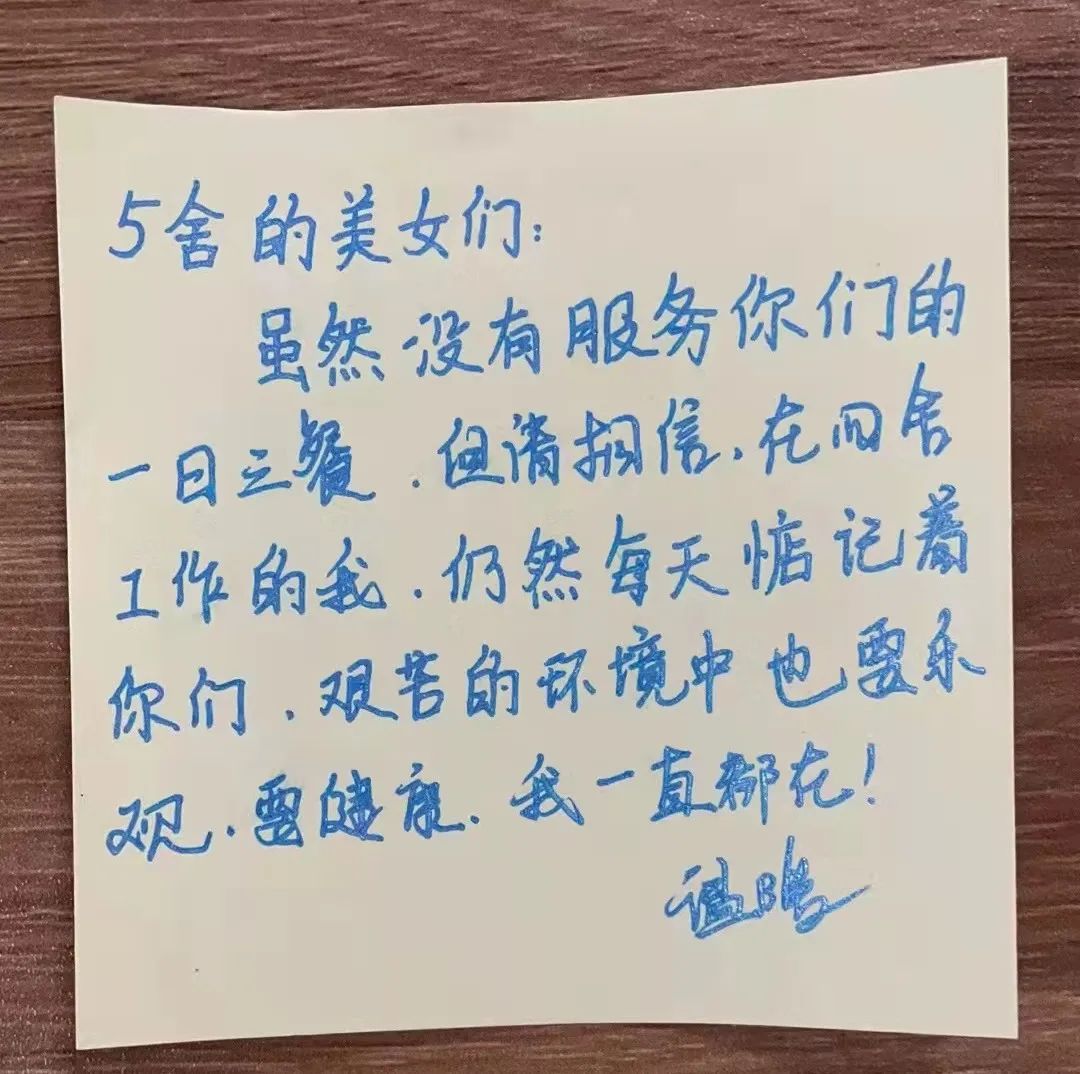 5舍的美女们:
虽然没有服务你们的
一日三餐,但请相信,在四舍
工作的我,仍然每天惦记着
你们,艰苦的环境中也要乐
观,要健康,我一直都在!
温